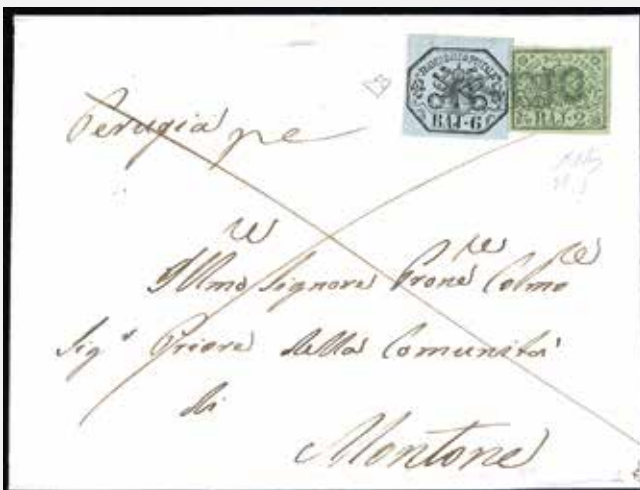 FRANCO BOLLO POSTALE
BAJ 6
BAJ 2
Perugia pe
Illmo Signore Prone Colmo
Sig.e Priore della Comunità
di
Montone